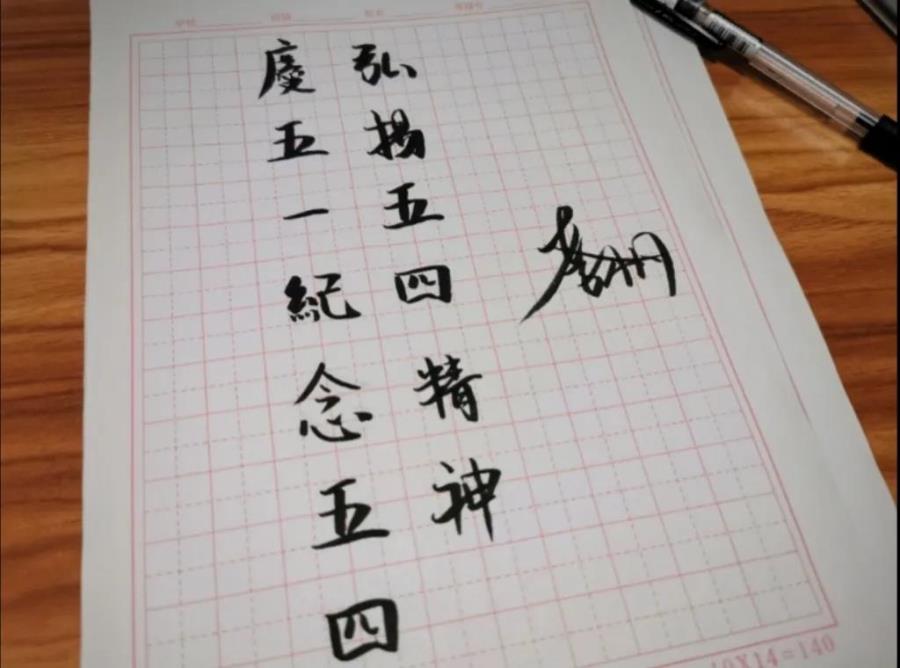 慶五一紀念五四
弘揚五四精神
10X14=140